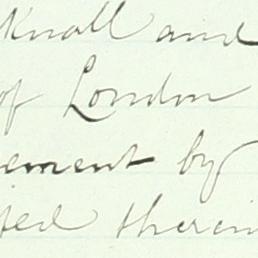 Knoll and
of London
ement by
fied therein